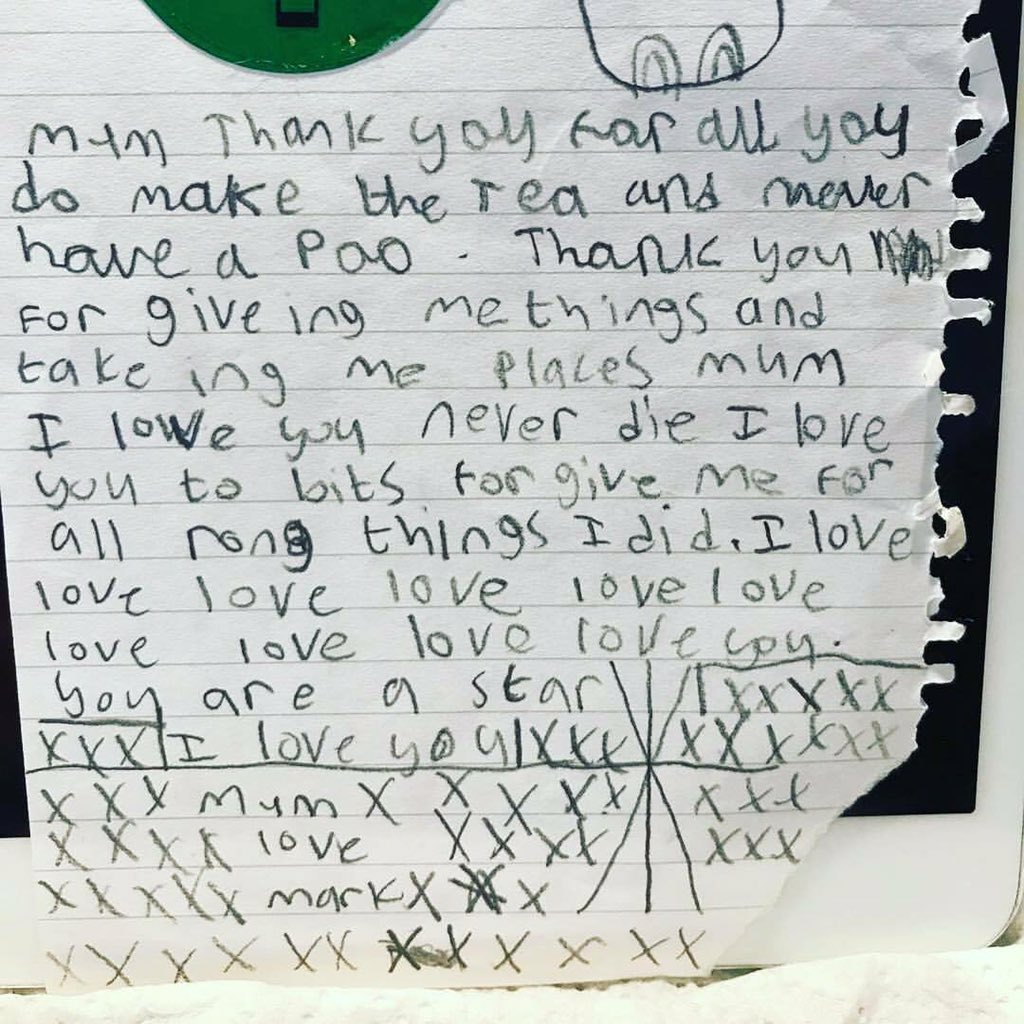 mum Thank you for all you
do make the Tea and never
have a Poo . Thank you
For giveing me things and
take ing me places mum
I love you never die I love
you to bits for give me for
all rong things I did. I love
love love love love love
love love love love you.
you are a star xxxxx
xxx I love you xxx xxxxxx
xxx Mum x x x xx xxx
xxxx love xxxx xxx
xxxxx mark x x x
xx x x xx x x x x xx